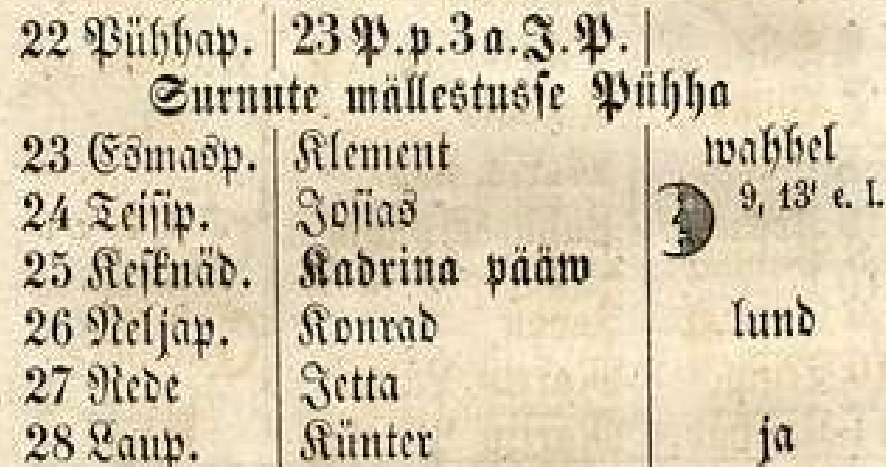 22 Pühhap. 23 P.p.3 a.J.P.
Surnute mällestusse Pühha
23 Esmasp. Klement wahhel
24 Teisip. Josias 9, 13' e. l.
25 Kesknäd. Kadrina pääw
26 Neljap. Konrad lund
27 Rede Jetta
28 Laup. Künter ja